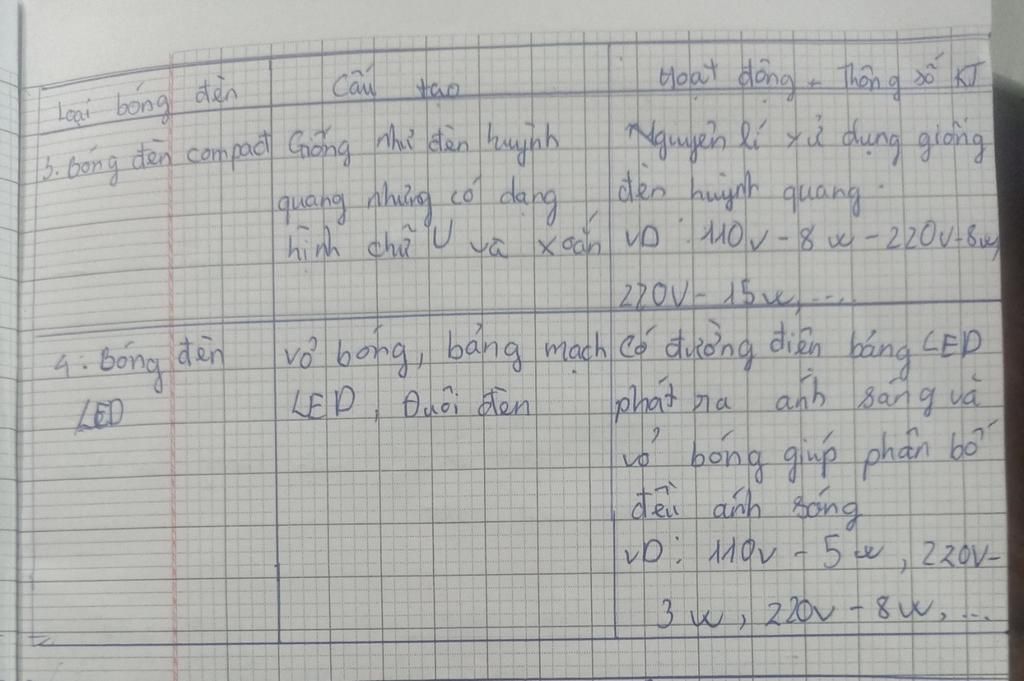 Loại bóng đèn
Cấu tạo
Hoạt động - Thông số KT
3. Bóng đèn compact
Giống như đèn huỳnh
quang nhưng có dạng
hình chữ U và xoắn
Nguyên lí xử dụng giống
đèn huỳnh quang.
VD: 110V - 8W - 220V - 8W,
220V - 15W, ...
4. Bóng đèn
LED
Vỏ bóng, bảng mạch
LED, Đuôi đèn
Có đường điện bảng LED
phát ra ánh sáng và
vỏ bóng giúp phân bố
đều ánh sáng
VD: 110V - 5W, 220V -
3W, 220V - 8W, ...